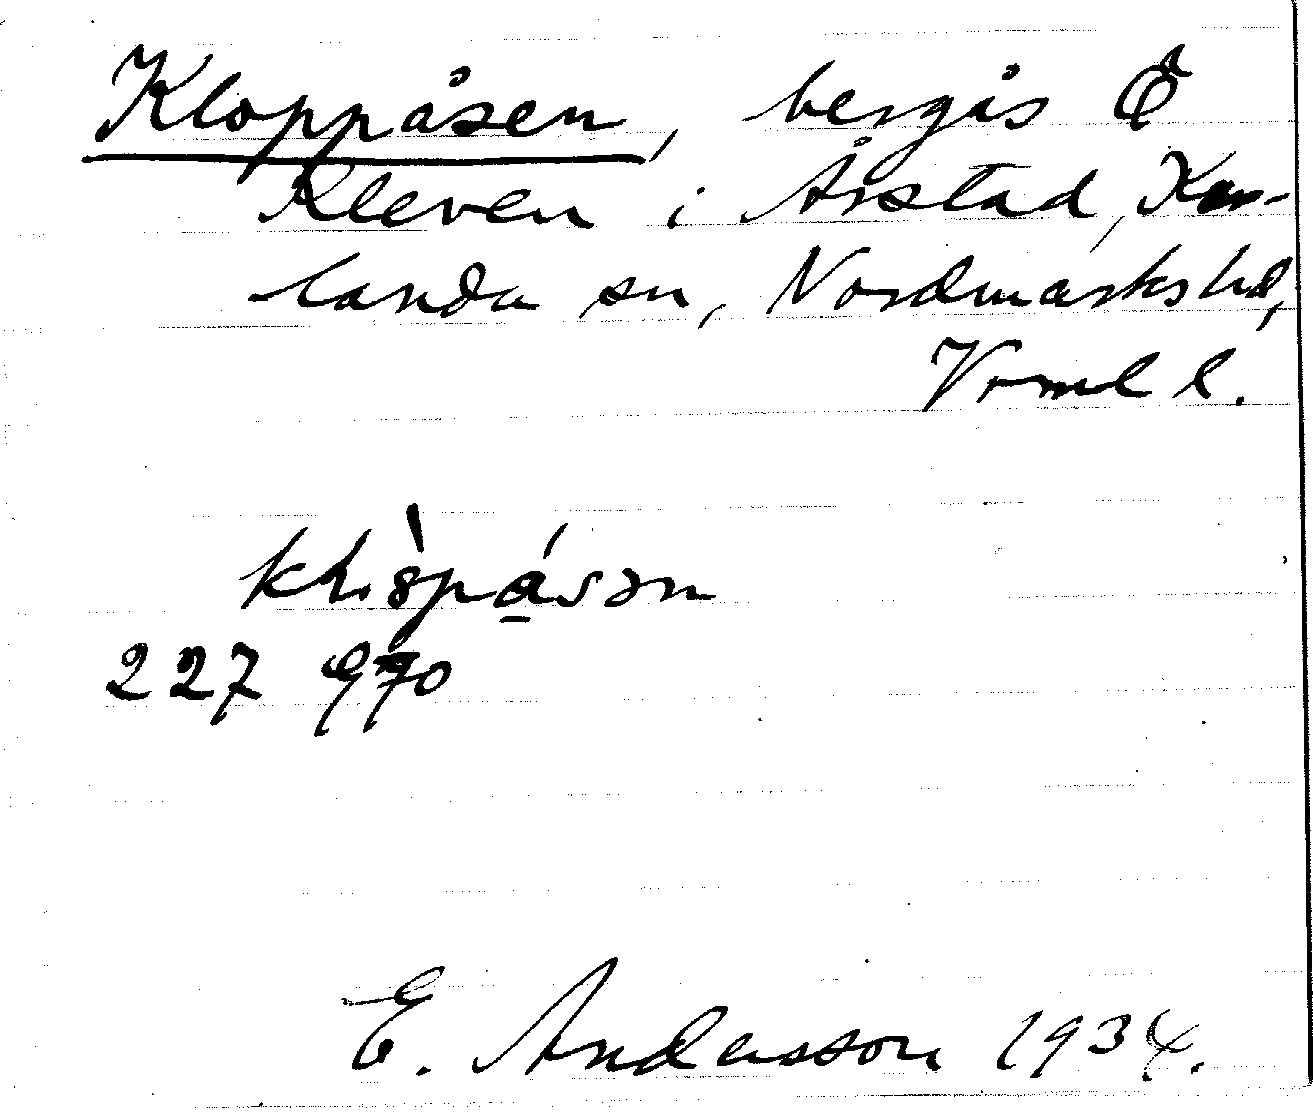 Kloppåsen, bergås Ö
Kleven i Årstad, Kar-
landa sn, Nordmarks hd,
Vrml l.
227 970
E. Andersson 1934.